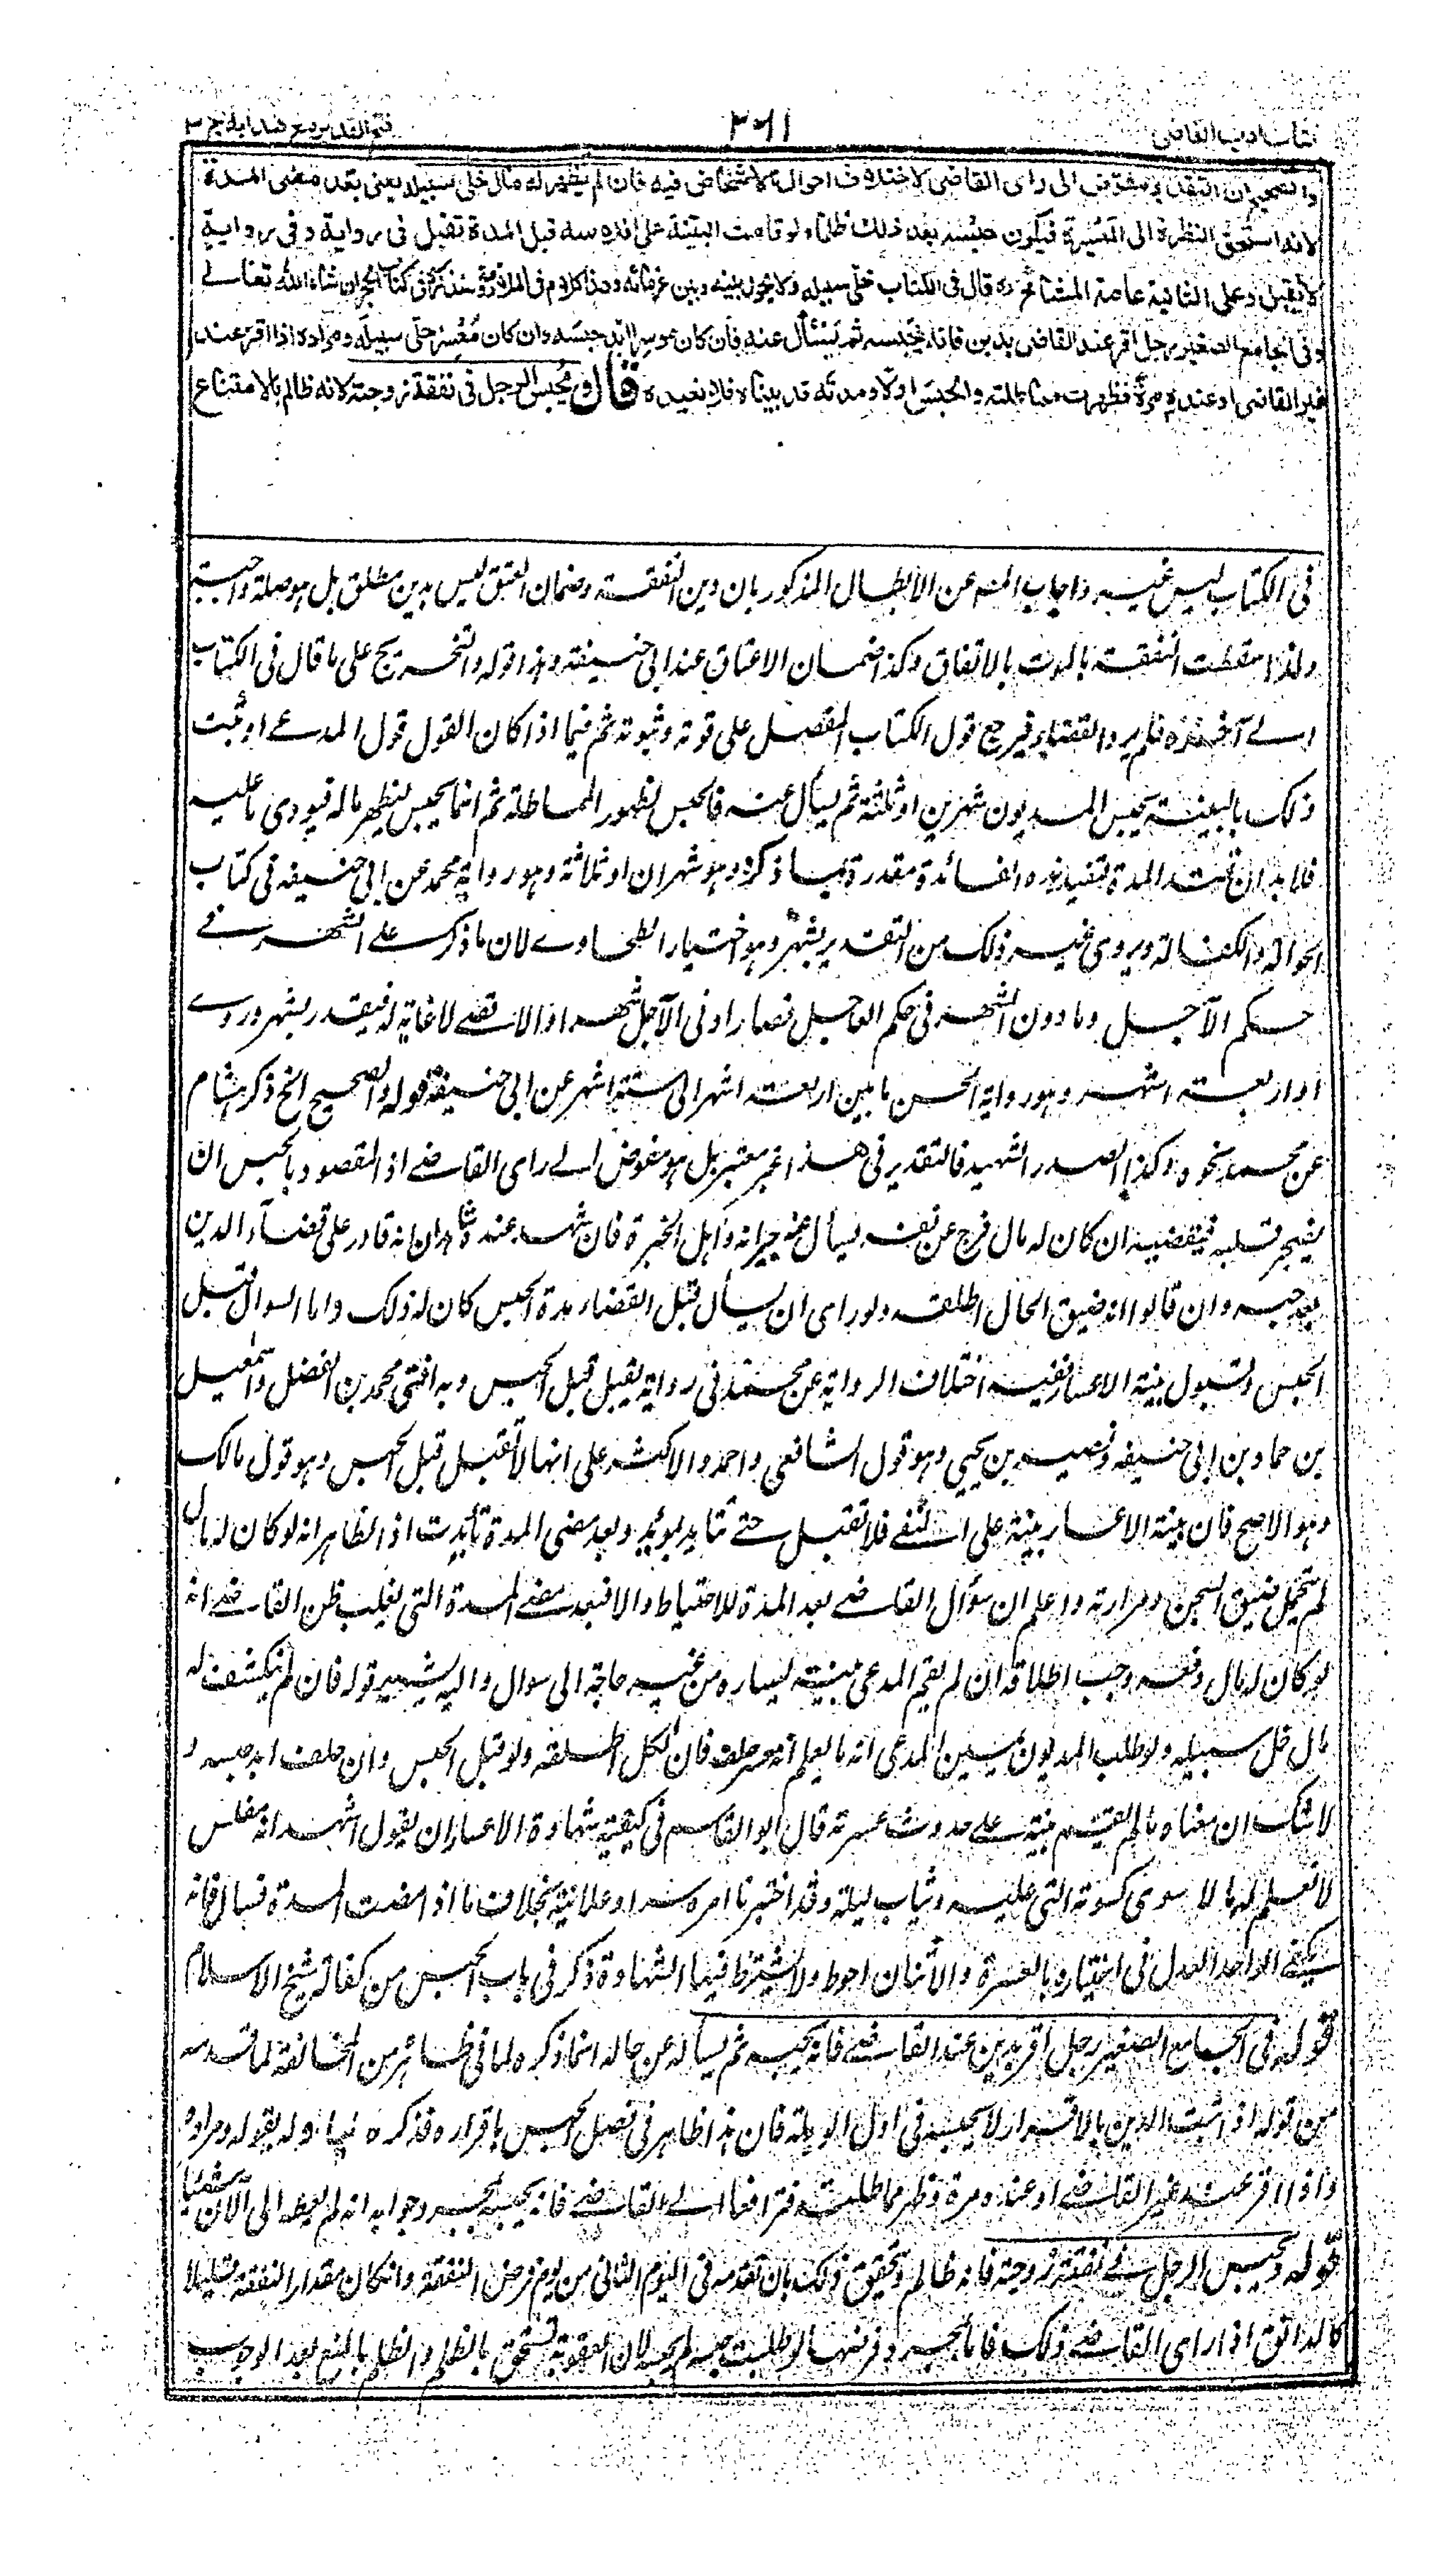 كتاب ادب القاضى
٣٦١
فتح القدير مع هداية ج ٣
والصحيح ان التقدير مفوض الى راى القاضى لاختلاف احوال الاشخاص فيه فان لم يظهر له مال خلى سبيله يعنى بعد مضى المدة
لانه استحق النظرة الى الميسرة فيكون حبسه بعد ذلك ظلما ولو قامت البينة على افلاسه قبل المدة تقبل فى رواية وفى رواية
لا تقبل وعلى الثانية عامة المشائخ ره قال فى الكتاب خلى سبيله ولا يحول بينه وبين غرمائه وهذا كلام فى الملازمة وسنذكره فى كتاب الحجر ان شاء الله تعالى
وفى الجامع الصغير رجل اقر عند القاضى بدين فانه يحبسه ثم يسأل عنه فان كان موسرا ابد حبسه وان كان معسرا خلى سبيله ومراده اذا اقر عند
غير القاضى او عنده مرة فظهرت مماطلته والحبس اولا ومدته قد بيناه فلا نعيده قال ويحبس الرجل فى نفقة زوجته لانه ظالم بالامتناع
فى الكتاب ليس غيره واجاب المصنف عن الابطال المذكور بان دين النفقة وضمان العتق ليس بدين مطلق بل هو صلة واجبة
ولذا سقطت النفقة بالموت بالاتفاق وكذا ضمان الاعتاق عند ابى حنيفة وهذا قوله والتخريج على ما قال فى الكتاب
الى آخره فلم يرد النقضان فيرجح قول الكتاب المفصل على قوته وثبوته ثم فيما اذا كان القول قول المدعى او ثبت
ذلك بالبينة يحبس المديون شهرين او ثلثة ثم يسأل عنه فالحبس لظهور المماطلة ثم انما يحبس ليظهر ماله فيودى ما عليه
فلا بد ان تمتد المدة لتفيد هذه الفائدة مقدرة بما ذكره وهو شهران او ثلاثة وهو رواية محمد عن ابى حنيفة فى كتاب
الحوالة والكفالة ويروى غير ذلك من التقدير بشهر وهو اختيار الطحاوى لان ما ذكر على الشهر فى
حكم الآجل وما دون الشهر فى حكم العاجل فصار ادنى الآجل شهرا والاقصى لا غاية له فيقدر بشهر وروى
او اربعة اشهر وهو رواية الحسن ما بين اربعة اشهر الى ستة اشهر عن ابى حنيفة قوله والصحيح الخ ذكر هشام
عن محمد نحوه وكذا الصدر الشهيد فالتقدير فى هذا غير معتبر بل هو مفوض الى راى القاضى اذ المقصود بالحبس ان
يضجر قلبه فيقضيه ان كان له مال فرج عن نفسه يسأل عنه جيرانه واهل الخبرة فان شهد عنده شاهدان انه قادر على قضاء الدين
يؤبد حبسه وان قالوا انه ضيق الحال اطلقه ولو راى ان يسأل قبل انقضاء مدة الحبس كان له ذلك واما السوال قبل
الحبس وقبول بينة الاعسار ففيه اختلاف الرواية عن محمد فى رواية يقبل قبل الحبس وبه افتى محمد بن الفضل واسمعيل
بن حماد بن ابى حنيفة ونصير بن يحيى وهو قول الشافعى واحمد والاكثر على انها لا تقبل قبل الحبس وهو قول مالك
وهو الاصح فان بينة الاعسار بينة على النفى فلا تقبل حتى تتايد بمؤيد وبعد مضى المدة تأيدت اذ الظاهر انه لو كان له مال
لم يتحمل ضيق السجن ومرارته واعلم ان سؤال القاضى بعد المدة للاحتياط والا فبعد مضى المدة التى يغلب ظن القاضى انه
لو كان له مال دفعه وجب اطلاقه ان لم يقم المدعى بينة ليساره من غير حاجة الى سوال واليه يشير قوله فان لم ينكشف له
مال خلى سبيله ولو طلب المديون يمين المدعى انه ما يعلم انه معسر حلف فان نكل اطلقه ولو قبل الحبس وان حلف ابد حبسه و
لا شك ان معناه ما لم يقيم بينة على حدوث عسرته قال ابو القاسم فى كيفية شهادة الاعسار ان يقول اشهد انه مفلس
لا نعلم له مالا سوى كسوته التى عليه وثياب ليلته وقد اختبرنا امره سرا وعلانية بخلاف ما اذا مضت المدة فسأل فانه
يكفى الواحد العدل فى اخباره بالعسرة والاثنان احوط ولا يشترط فيها الشهادة ذكر فى باب الحبس من كفالة شيخ الاسلام
قوله وفى الجامع الصغير رجل اقر بدين عند القاضى فانه يحبسه ثم يسأله عن حاله انما ذكره لما فى ظاهر من المخالفة لما قدمه
من قوله اذا ثبت الدين بالاقرار لا يحبسه فى اول الوهلة فان هذا ظاهر فى فصل الحبس باقراره فذكره ليأوله بقوله ومراده
واذا اقر عند غير القاضى او عنده مرة وظهر مماطلته فترافعا الى القاضى فانه يحبسه وجوابه انه لم يعطه الى الآن شيئا
قوله ويحبس الرجل فى نفقة زوجته فانه ظالم وتحقيق ذلك بان تقدمه فى اليوم الثانى من يوم فرض النفقة وان كان مقدار النفقة قليلا
كالدانق اذا راى القاضى ذلك فاما بمجرد فرضها لو طلبت حبسه لم يحبسه لان العقوبة تستحق بالظلم والظلم بالمنع بعد الوجوب